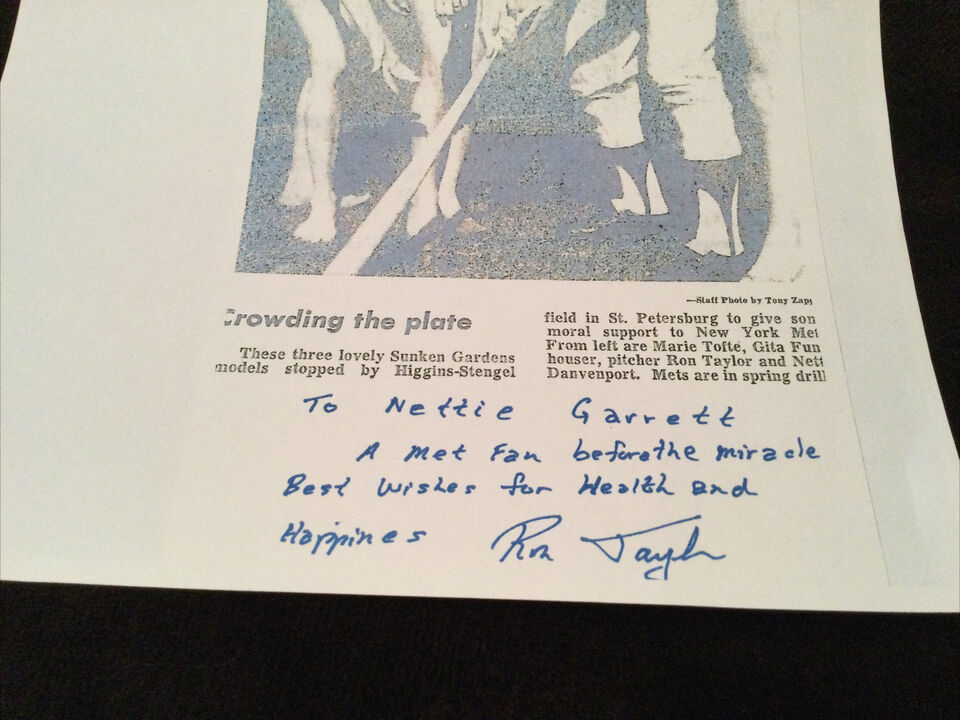 —Staff Photo by Tony Zapp
Crowding the plate
These three lovely Sunken Gardens
models stopped by Higgins-Stengel
field in St. Petersburg to give son
moral support to New York Met
From left are Marie Tofte, Gita Fun
houser, pitcher Ron Taylor and Nett
Danvenport. Mets are in spring drill
To Nettie Garrett
A Met Fan before the miracle
Best Wishes for Health and
Happines Ron Taylor